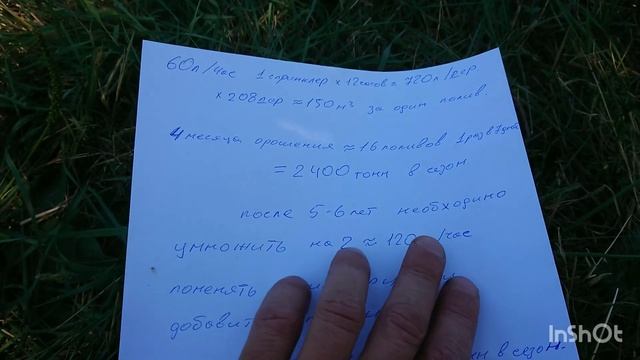 60л/час 1 спринклер x 12 часов = 720 л/дер
x 208 дер ≈ 150 м³ за один полив.
4 месяца орошения ≈ 16 поливов 1 раз в 7 дней
= 2400 тонн в сезон
после 5-6 лет необходимо
умножить на 2 ≈ 120 /час
поменять
добавить
в сезон.
InShOt